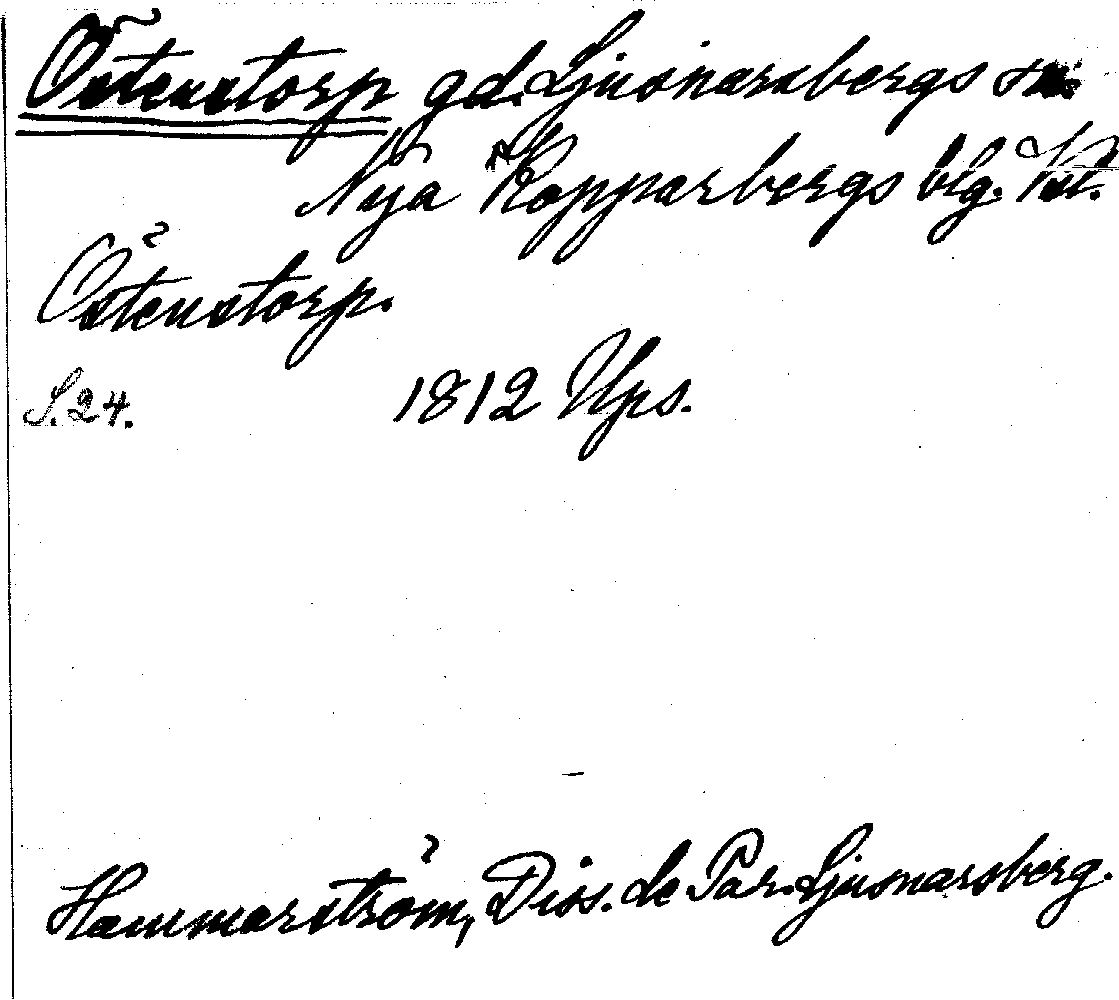 Östenstorp gd. Ljusnarsbergs sn.
Nya Kopparbergs blg. Vst.
Östenstorp.
S. 24. 1812 Ups.
Hammarström, Diss. de Par. Ljusnarsberg.